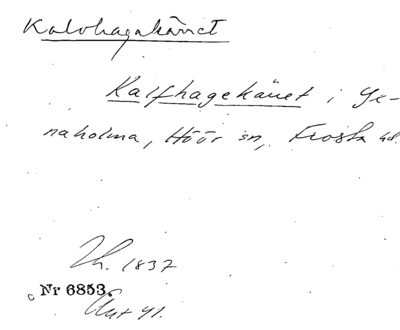 Kalvhagakänet
Kalfhagekänet i Ge-
naholma, Höör sn, Frosta hd.
Th. 1837
Nr 6853.
41.